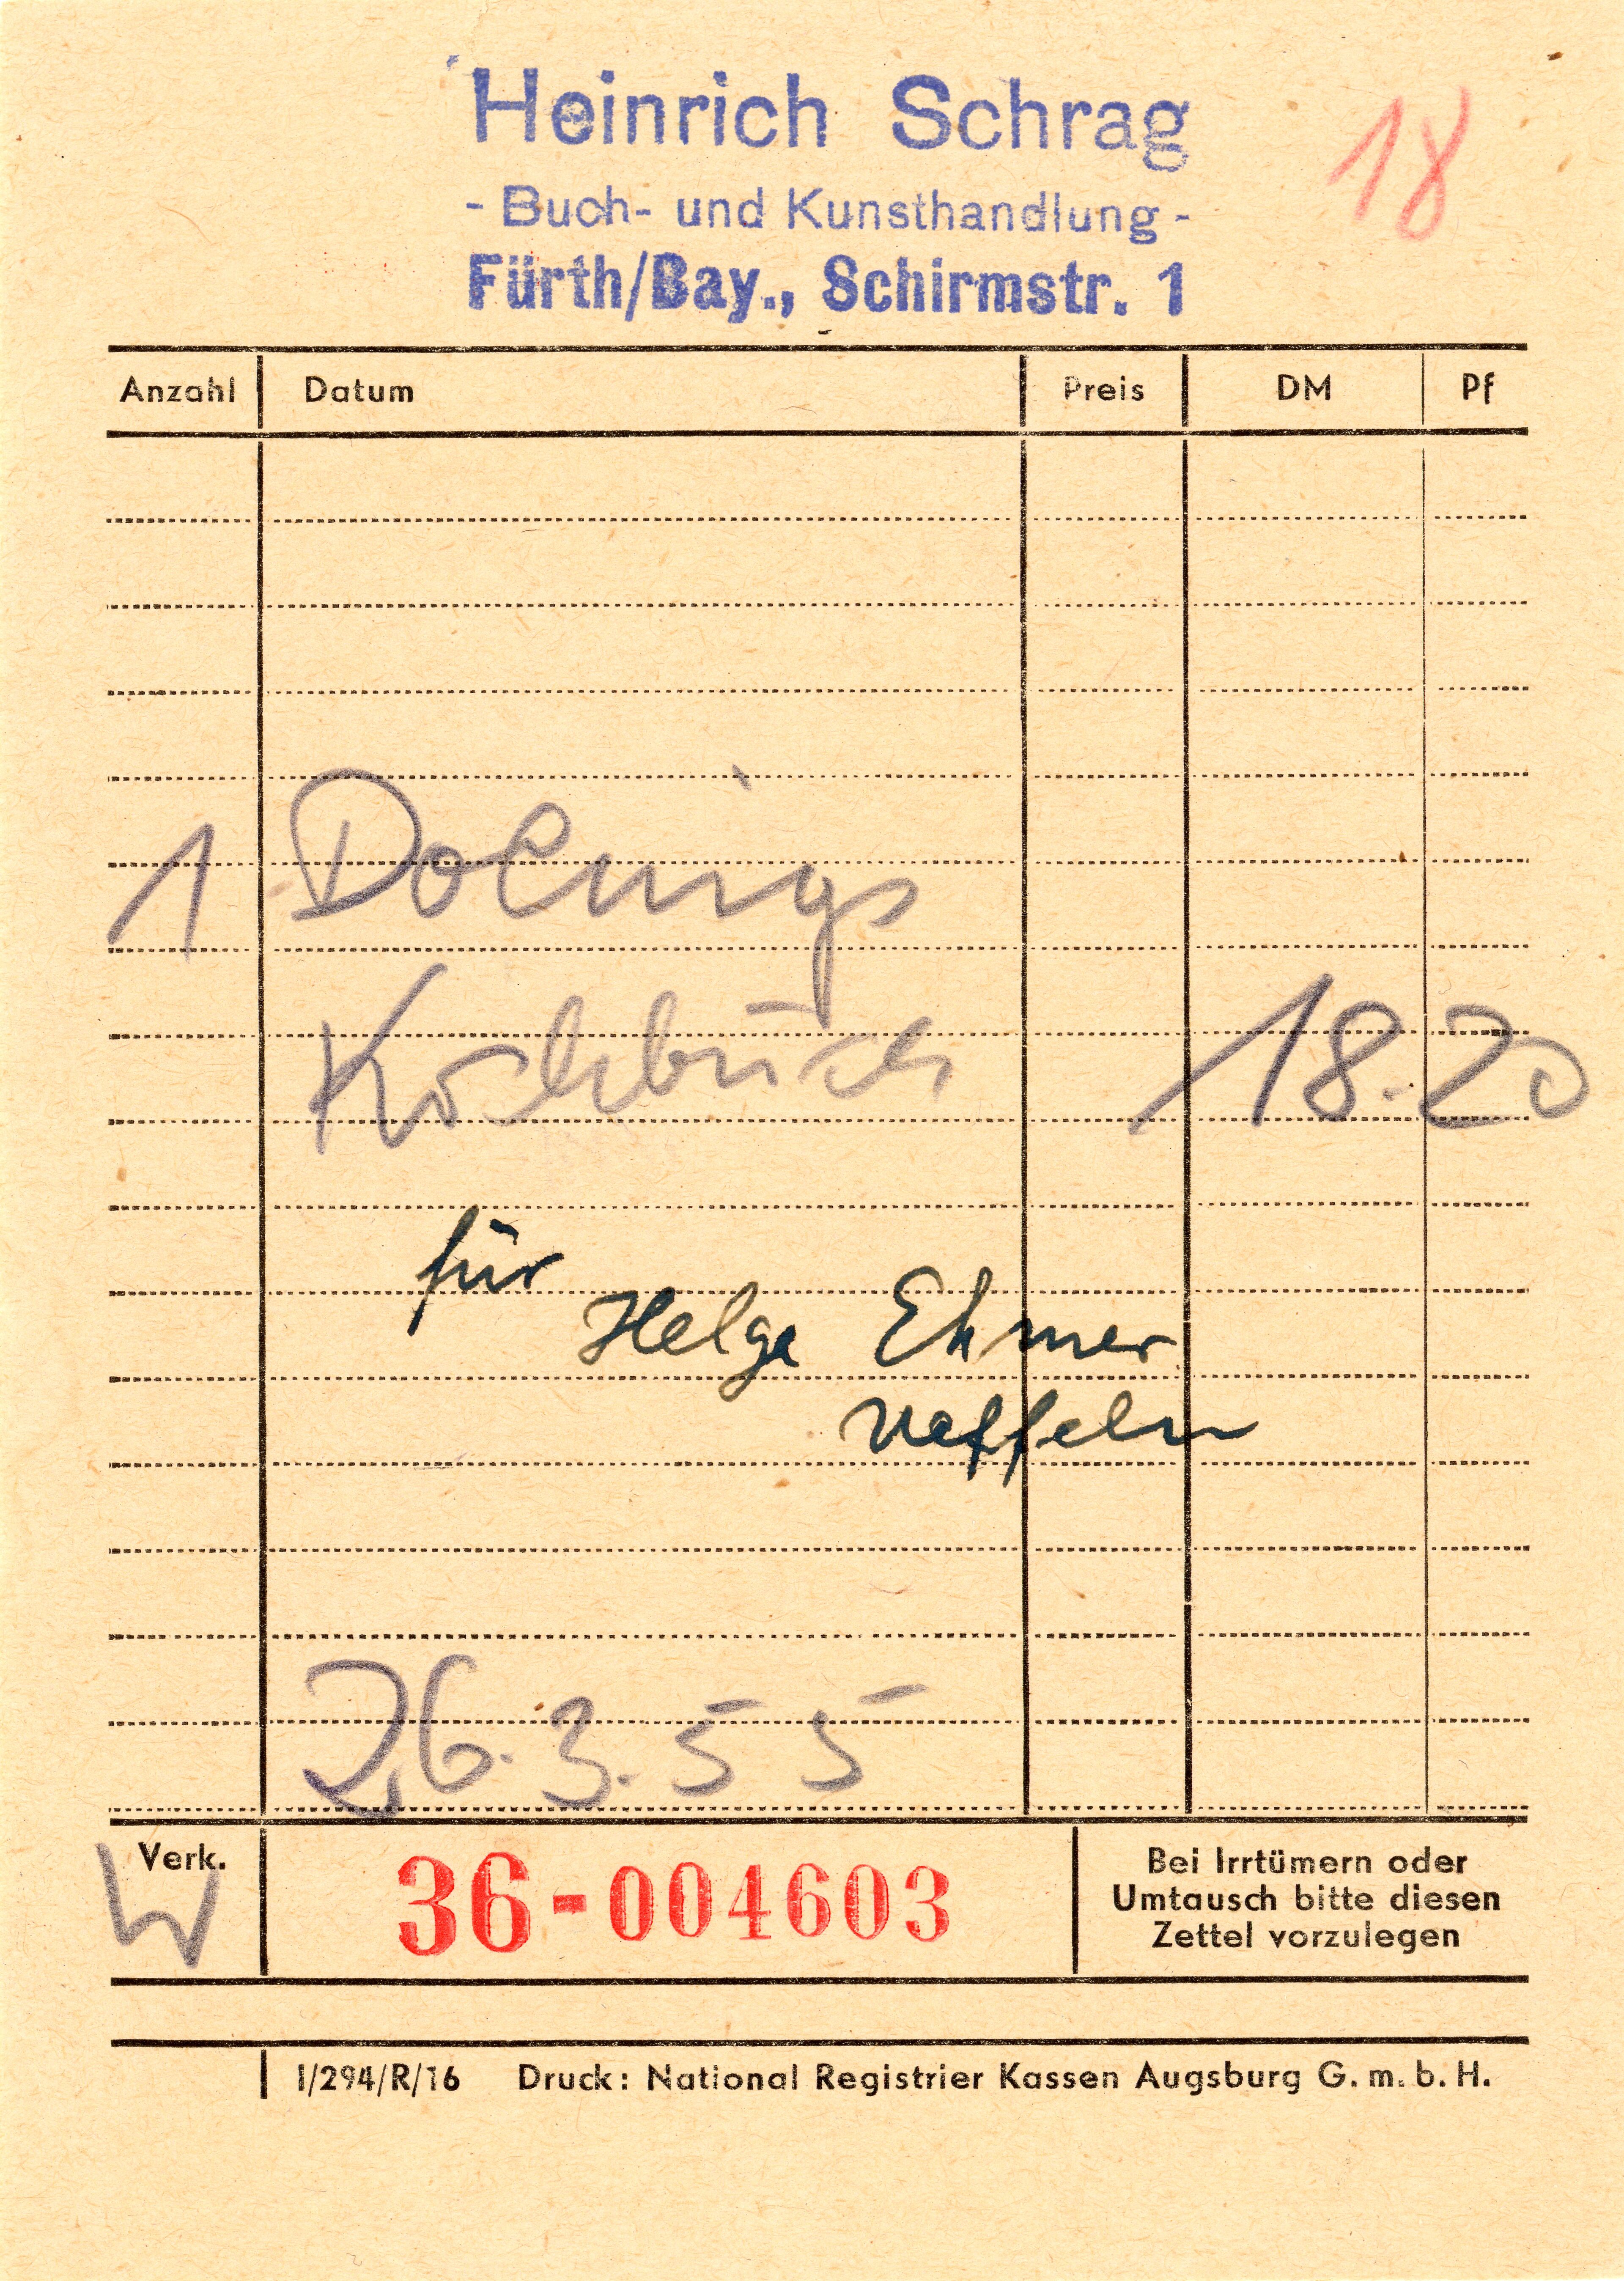 Heinrich Schrag
18
- Buch- und Kunsthandlung -
Fürth/Bay., Schirmstr. 1
Anzahl Datum Preis DM Pf
1
Kochbuch 18.20
für
Helga Ehmer
26.3.55
Verk. W 36-004603 Bei Irrtümern oder
Umtausch bitte diesen
Zettel vorzulegen
I/294/R/16 Druck: National Registrier Kassen Augsburg G. m. b. H.